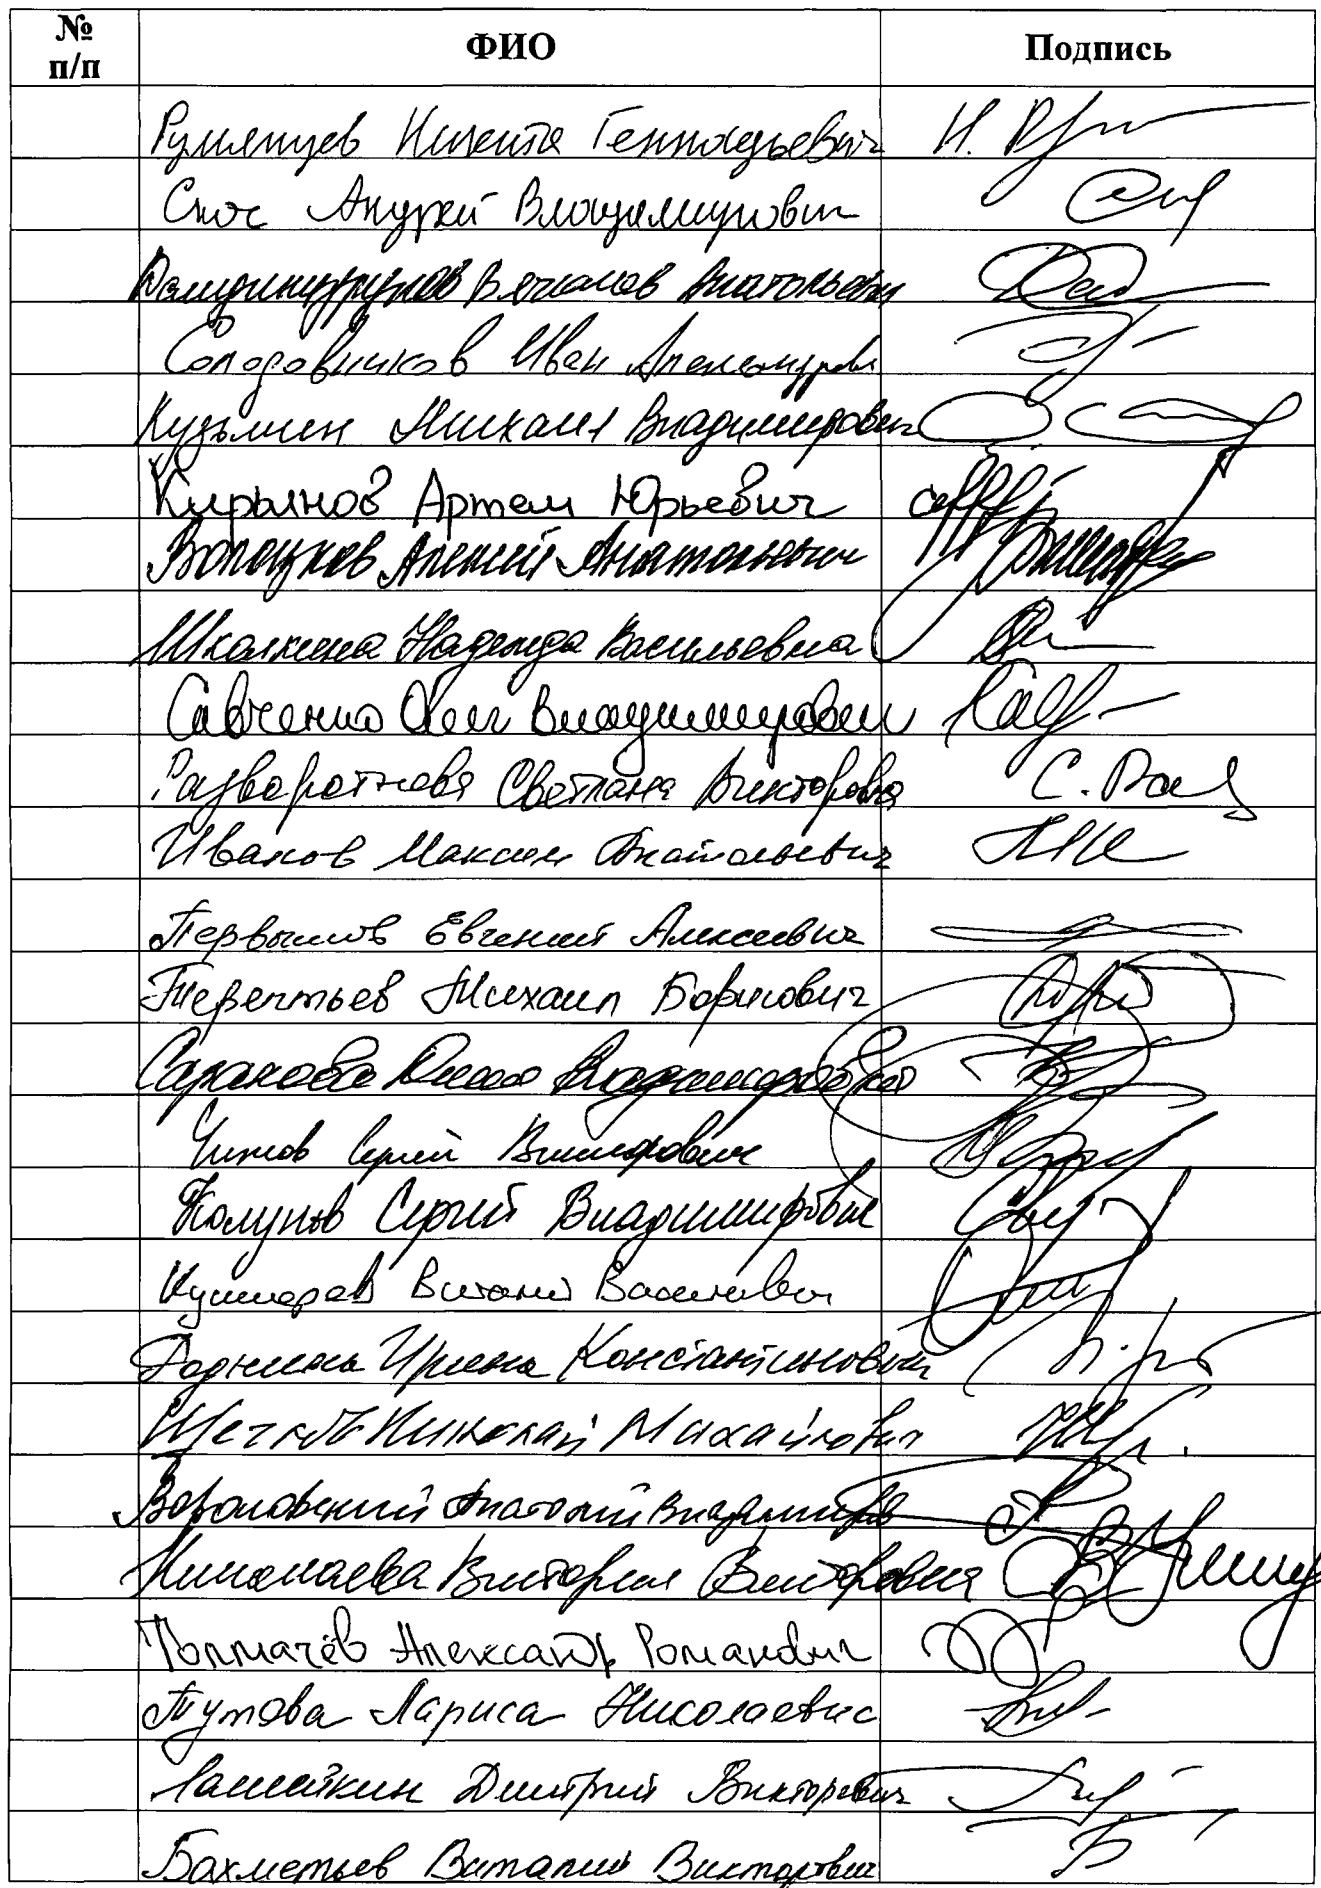 № п/п ФИО Подпись
Румянцев Никита Геннадьевич Н. Ру
Скоч Андрей Владимирович
Вячеслав Анатольевич
Солодовников Иван Александрович
Кузьмин Михаил Владимирович
Кирьянов Артем Юрьевич
Волоцков Алексей Анатольевич
Школкина Надежда Васильевна
Савченко Олег Владимирович
Разворотнева Светлана Викторовна С. Раз
Иванов Максим Анатольевич
Первышов Евгений Алексеевич
Терентьев Михаил Борисович
Владимировна
Чижов Сергей Викторович
Колунов Сергей Владимирович
Кушнарев Виталий Васильевич
Роднина Ирина Константиновна
Щеглов Николай Михайлович
Вороновский Анатолий Владимиров
Николаева Виктория Викторовна
Толмачёв Александр Романович
Тутова Лариса Николаевна
Ламейкин Дмитрий Викторович
Бахметьев Виталий Викторович